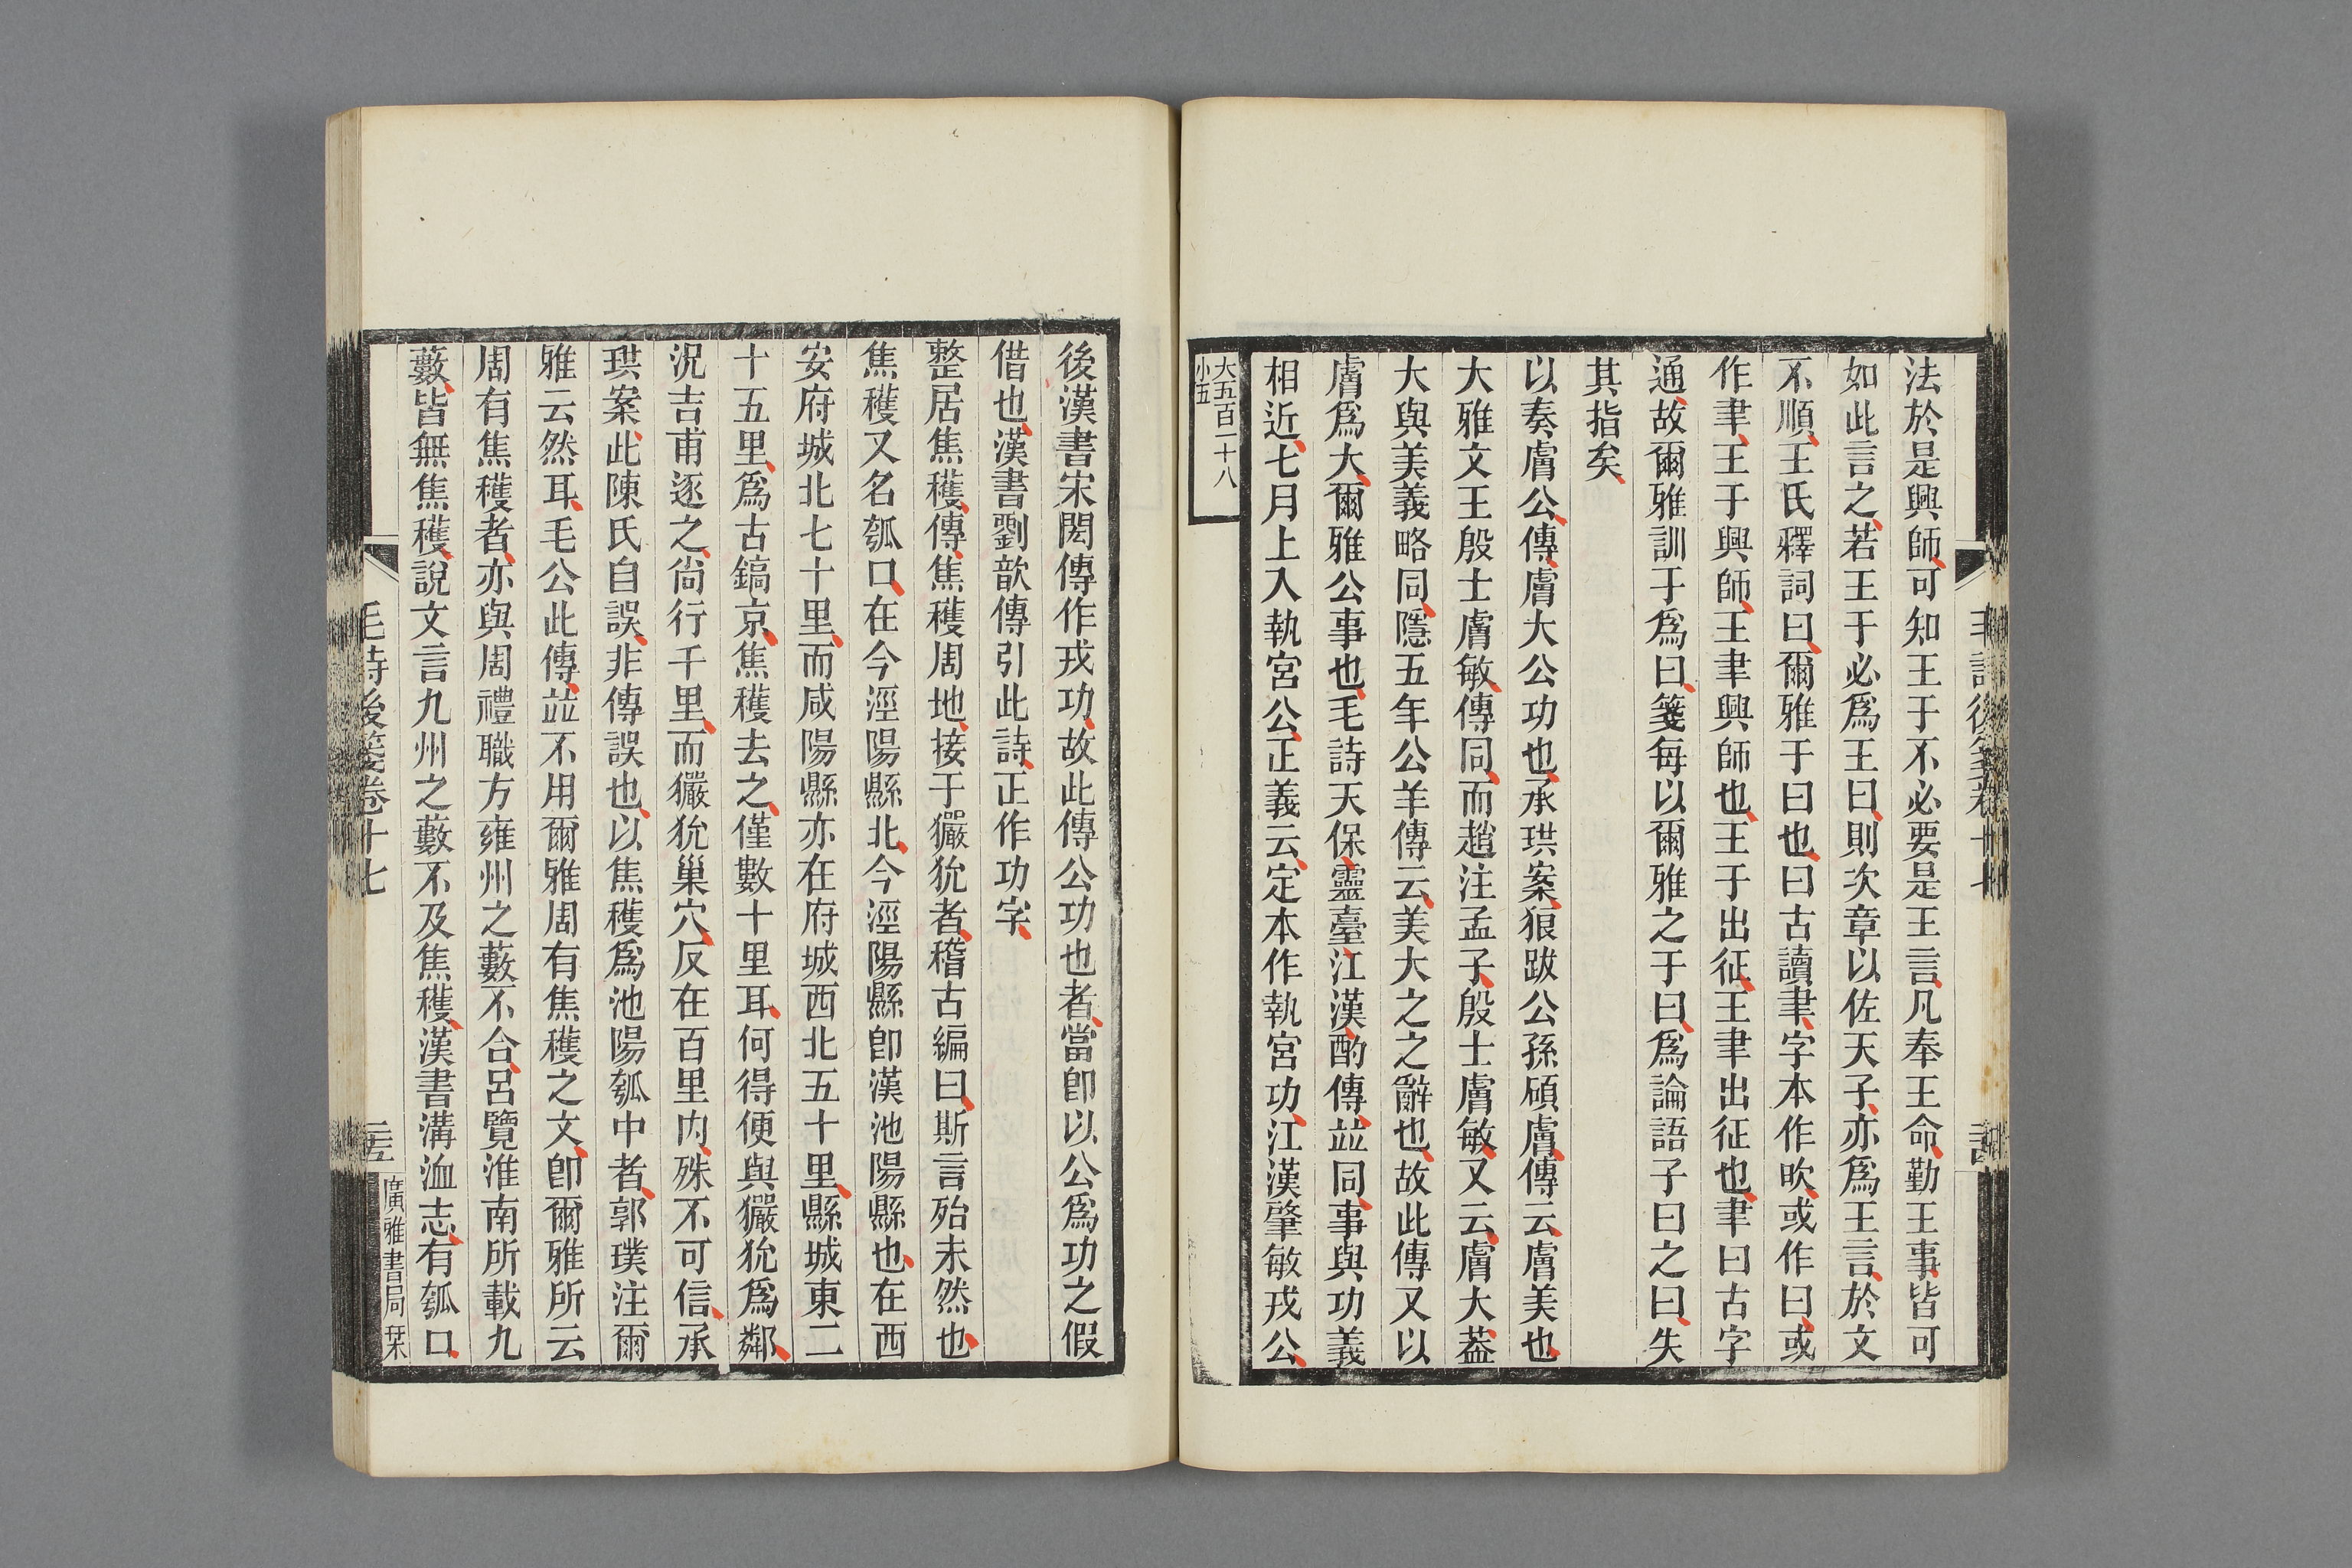 法於是興師可知王于不必要是王言凡奉王命勤王事皆可
如此言之若王于必爲王曰則次章以佐天子亦爲王言於文
不順王氏釋詞曰爾雅于曰也曰古讀聿字本作欥或作曰或
作聿王于興師王聿興師也王于出征王聿出征也聿曰古字
通故爾雅訓于爲曰箋每以爾雅之于曰爲論語子曰之曰失
其指矣
以奏膚公傳膚大公功也承珙案狼跋公孫碩膚傳云膚美也
大雅文王殷士膚敏傳同而趙注孟子殷士膚敏又云膚大葢
大與美義略同隱五年公羊傳云美大之之辭也故此傳又以
膚爲大爾雅公事也毛詩天保靈臺江漢酌傳並同事與功義
相近七月上入執宮公正義云定本作執宮功江漢肇敏戎公
大五百二十八
小五
後漢書宋閎傳作戎功故此傳公功也者當卽以公爲功之假
借也漢書劉歆傳引此詩正作功字
整居焦穫傳焦穫周地接于玁狁者稽古編曰斯言殆未然也
焦穫又名瓠口在今涇陽縣北今涇陽縣卽漢池陽縣也在西
安府城北七十里而咸陽縣亦在府城西北五十里縣城東二
十五里爲古鎬京焦穫去之僅數十里耳何得便與玁狁爲鄰
況吉甫逐之尙行千里而玁狁巢穴反在百里內殊不可信承
珙案此陳氏自誤非傳誤也以焦穫爲池陽瓠中者郭璞注爾
雅云然耳毛公此傳並不用爾雅周有焦穫之文卽爾雅所云
周有焦穫者亦與周禮職方雍州之藪不合呂覽淮南所載九
藪皆無焦穫說文言九州之藪不及焦穫漢書溝洫志有瓠口
毛詩後箋卷十七
廣雅書局栞